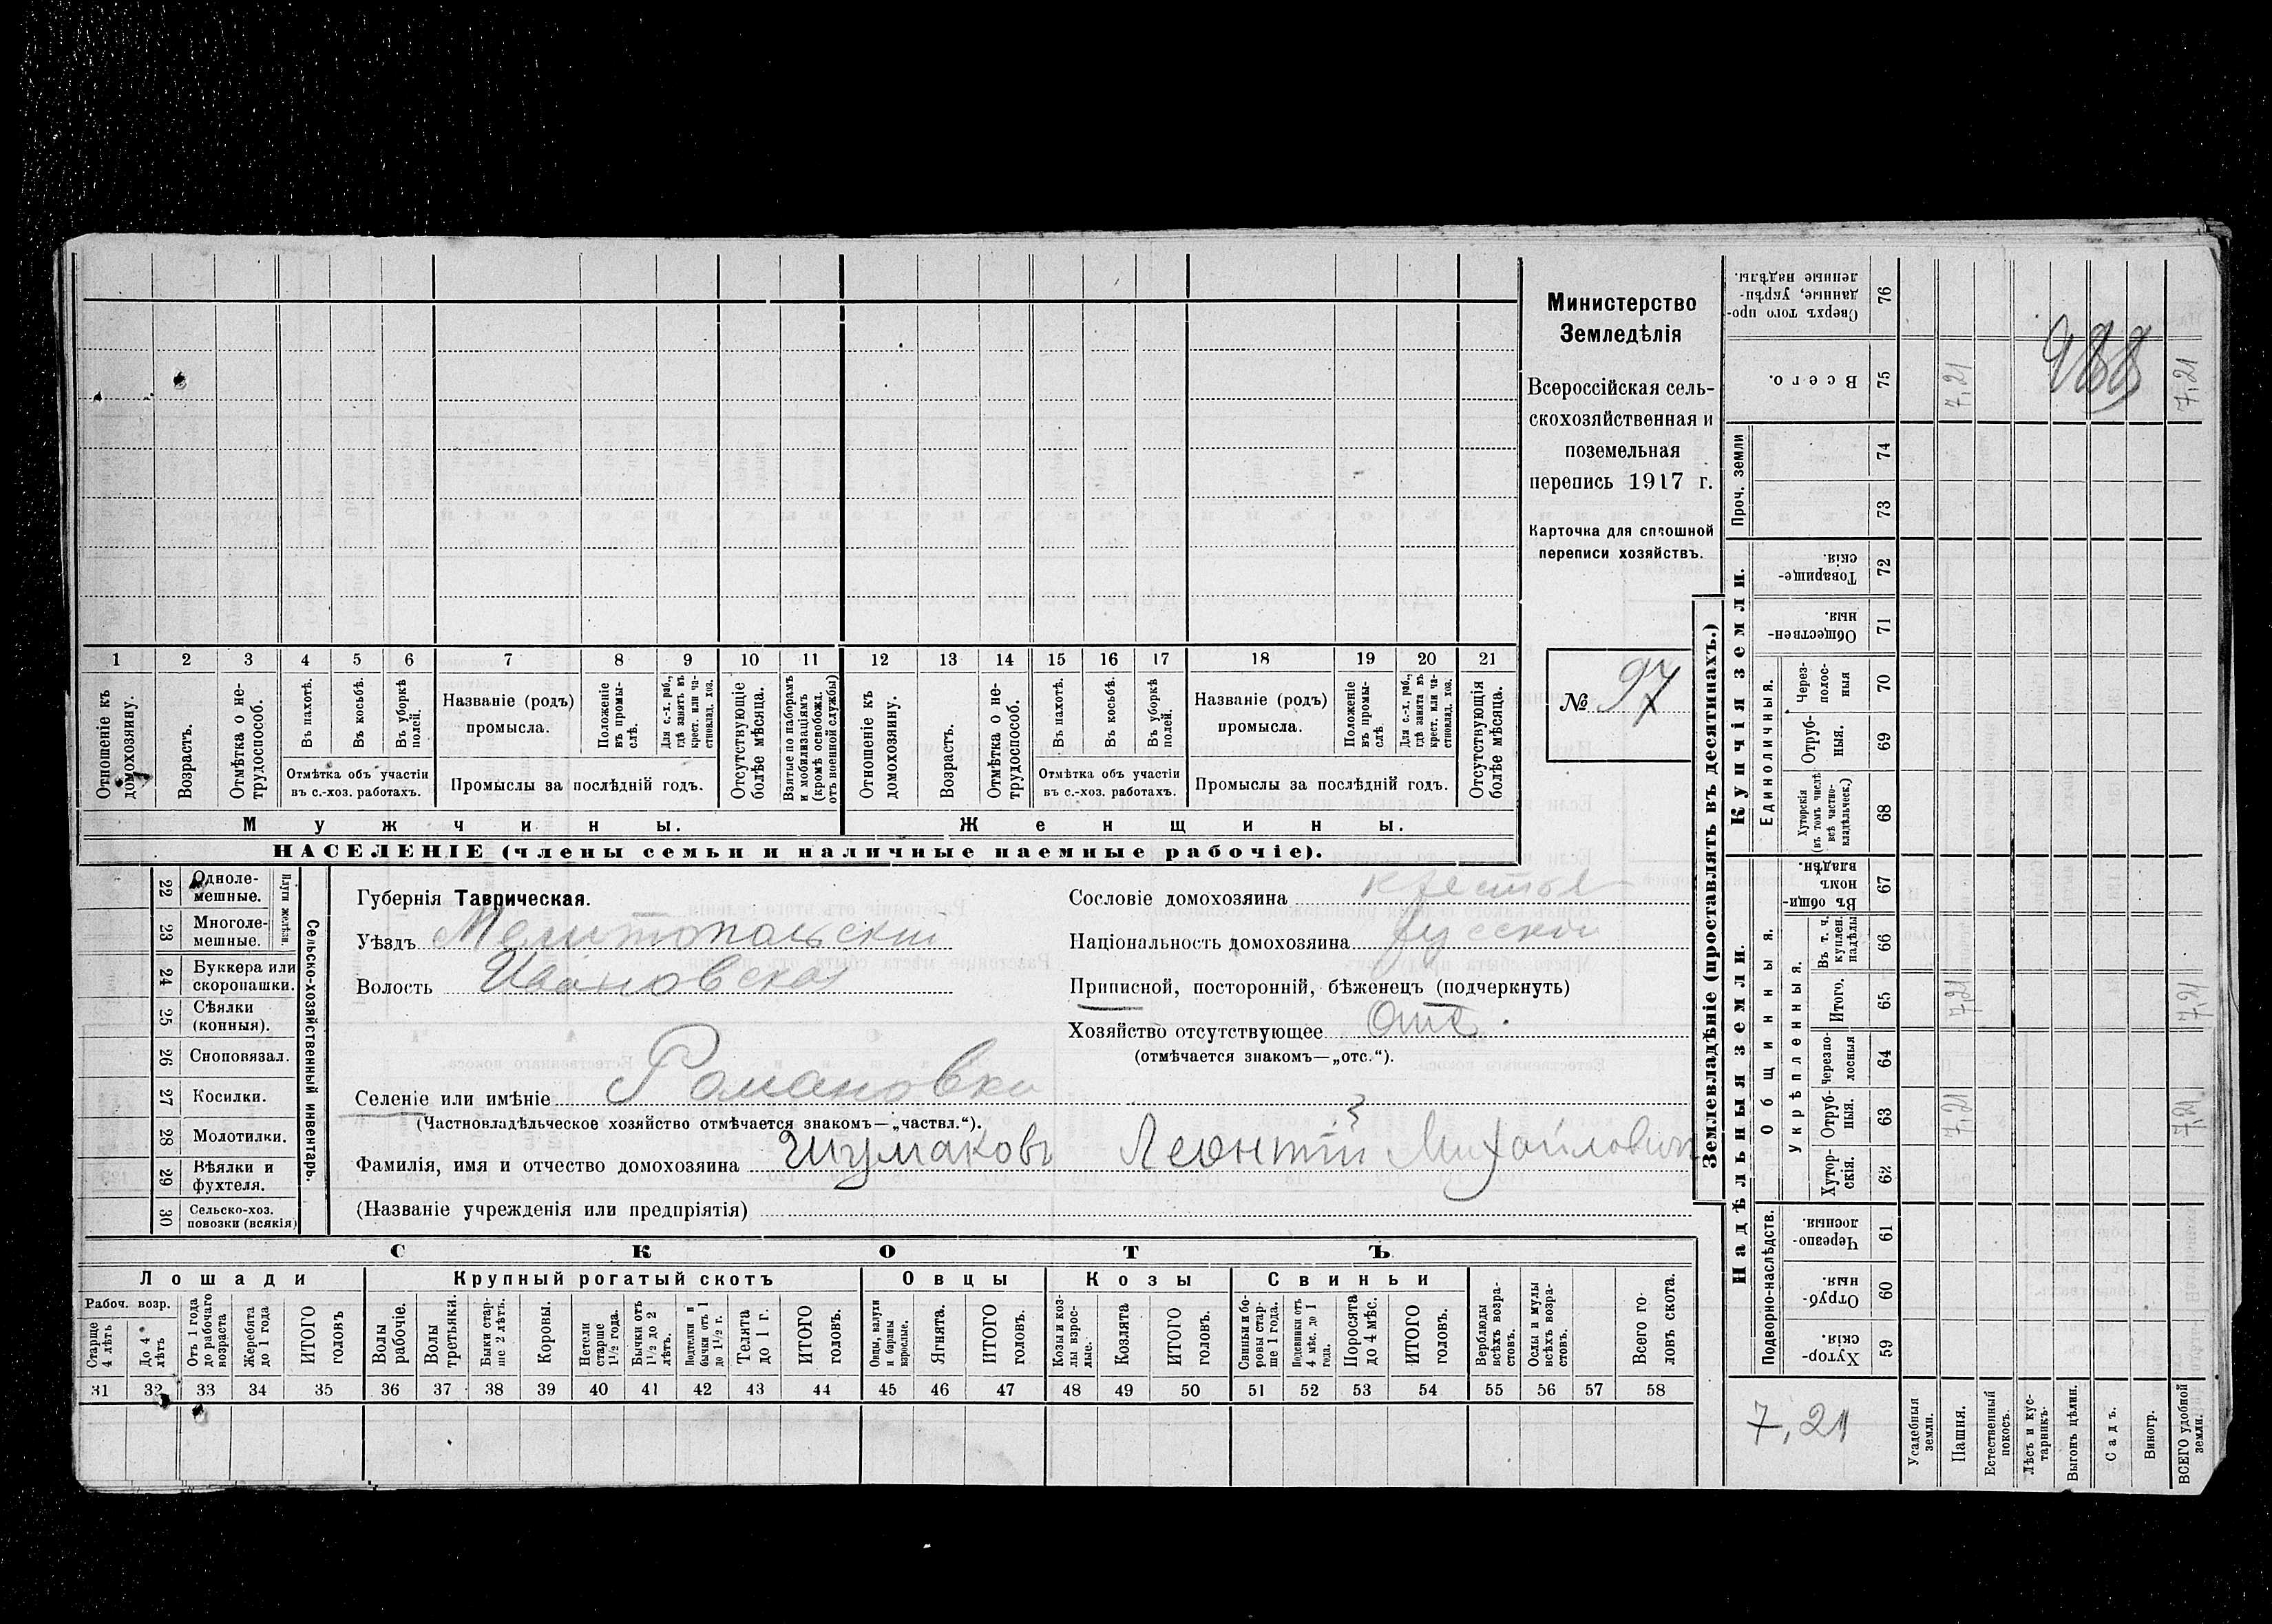 1 2 3 4 5 6 7 8 9 10 11 12 13 14 15 16 17 18 19 20 21
Отношеніе къ домохозяину.
Возрастъ.
Отмѣтка о не-
трудоспособ.
Въ пахотѣ.
Въ косьбѣ.
Въ уборкѣ полей.
Отмѣтка объ участіи
въ с.-хоз. работахъ.
Названіе (родъ)
промысла.
Положеніе въ промы-
слѣ.
Для с.-х. раб., гдѣ занятъ въ крест. или ча-
стновлад. хоз.
Промыслы за послѣдній годъ.
Отсутствующіе болѣе мѣсяца.
Взятые по наборамъ и мобилизаціямъ (кромѣ освобожд. отъ военной службы)
Отношеніе къ домохозяину.
Возрастъ.
Отмѣтка о не-
трудоспособ.
Въ пахотѣ.
Въ косьбѣ.
Въ уборкѣ полей.
Отмѣтка объ участіи
въ с.-хоз. работахъ.
Названіе (родъ)
промысла.
Положеніе въ промы-
слѣ
Для с.-х. раб., гдѣ занята въ крест. или ча-
стновлад. хоз.
Промыслы за послѣдній годъ.
Отсутствующія болѣе мѣсяца.
Мужчины.
Женщины.
НАСЕЛЕНІЕ (члены семьи и наличные наемные рабочіе).
Министерство
Земледѣлія
Всероссійская сель-
скохозяйственная и
поземельная
перепись 1917 г.
Карточка для сплошной
переписи хозяйствъ.
№ 97
22 Однолемешные.
23 Многолемешные.
Плуги желѣзн.
24 Буккера или скоропашки.
25 Сѣялки (конныя).
26 Сноповязал.
27 Косилки.
28 Молотилки.
29 Вѣялки и фухтеля.
30 Сельско-хоз. повозки (всякія)
Сельско-хозяйственный инвентарь.
Губернія Таврическая.
Уѣздъ Мелитопольскій
Волость Ивановская
Селеніе или имѣніе Романовка
(Частновладѣльческое хозяйство отмѣчается знакомъ—„частвл.“).
Фамилія, имя и отчество домохозяина Шумаковъ Леонтій Михайлович
(Названіе учрежденія или предпріятія)
Сословіе домохозяина крестья
Національность домохозяина русскій
Приписной, посторонній, бѣженецъ (подчеркнуть)
Хозяйство отсутствующее Отс.
(отмѣчается знакомъ—„отс.“).
СКОТЪ
Лошади
Крупный рогатый скотъ
Овцы
Козы
Свиньи
Рабоч. возр.
Старше 4 лѣтъ
До 4 лѣтъ
Отъ 1 года до рабочаго возраста
Жеребята до 1 года
ИТОГО головъ
Волы рабочіе.
Волы третьяки.
Быки стар-
ше 2 лѣтъ.
Коровы.
Нетели старше 1 1/2 года.
Бычки отъ 1 1/2 до 2 лѣтъ.
Подтелки и бычки отъ 1 до 1 1/2 г.
Телята до 1 г.
ИТОГО головъ.
Овцы, валухи и бараны взрослые.
Ягнята.
ИТОГО головъ.
Козы и коз-
лы взрос-
лые.
Козлята
ИТОГО головъ.
Свиньи и бо-
ровы стар-
ше 1 года.
Подсвинки отъ 4 мѣс. до 1 года.
Поросята до 4 мѣс.
ИТОГО головъ.
Верблюды всѣхъ возра-
стовъ.
Ослы и мулы всѣхъ возра-
стовъ.
Всего го-
ловъ скота.
31 32 33 34 35 36 37 38 39 40 41 42 43 44 45 46 47 48 49 50 51 52 53 54 55 56 57 58
Землевладѣніе (проставлять въ десятинахъ.)
Надѣльныя земли.
Купчія земли.
Проч. земли
Подворно-наслѣдств.
Общинныя.
Укрѣпленныя.
Единоличныя.
Хутор-
скія. 59
Отруб-
ныя. 60
Черезпо-
лосныя. 61
Хутор-
скія. 62
Отруб-
ныя. 63
Черезпо-
лосныя 64
Итого. 65
Въ т. ч. куплен. надѣлы 66
Въ общи-
номъ владѣн. 67
Хуторскія (въ томъ числѣ всѣ частно-
владѣльческ.) 68
Отруб-
ныя. 69
Через-
полос-
ныя 70
Обществен-
ныя. 71
Товарище-
скія. 72
73
74
Всего. 75
Сверхъ того про-
данные, укрѣп-
ленные надѣлы. 76
7,21
Усадебныя земли.
Пашня. 7,21 7,21 7,21
Естественный покосъ.
Лѣсъ и кус-
тарникъ.
Выгонъ цѣлин.
Садъ.
Виногр.
ВСЕГО удобной земли. 7,21 7,21 7,21
988